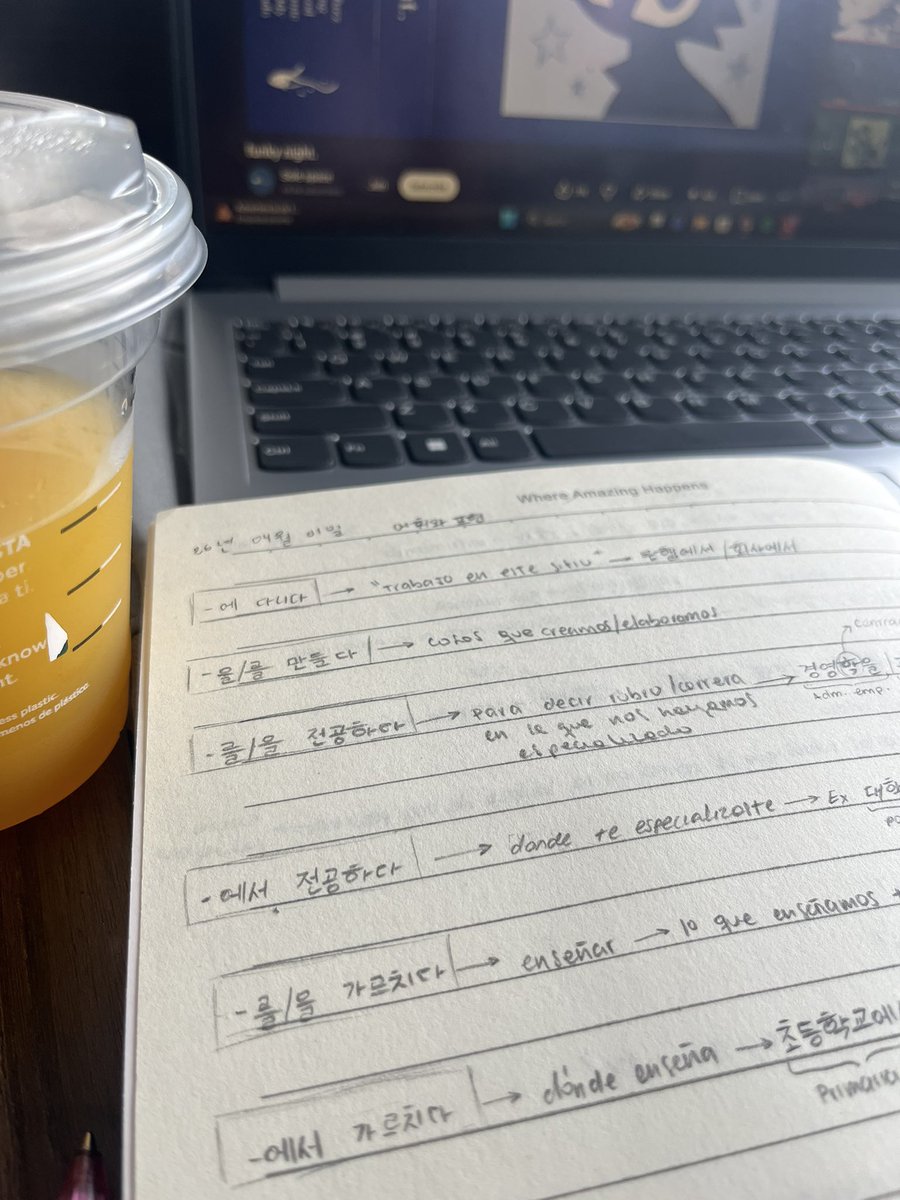 funky night.
STA
per
a ti.
know
nt.
ess plastic.
menos de plástico.
Alt
Where Amazing Happens
26년 04월 01일 어휘와 표현
-에 다니다 → "Trabajo en este sitio" → 은행에서 / 회사에서
-을/를 만들다 → cosas que creamos/elaboramos
-를/을 전공하다 → para decir rubro/carrera → 경영학을
en le que nos hayamos Adm. emp.
especializado
-에서 전공하다 → donde te especializaste → Ex 대학
-를/을 가르치다 → enseñar → lo que enseñamos +
-에서 가르치다 → dónde enseña → 초등학교에
Primaria